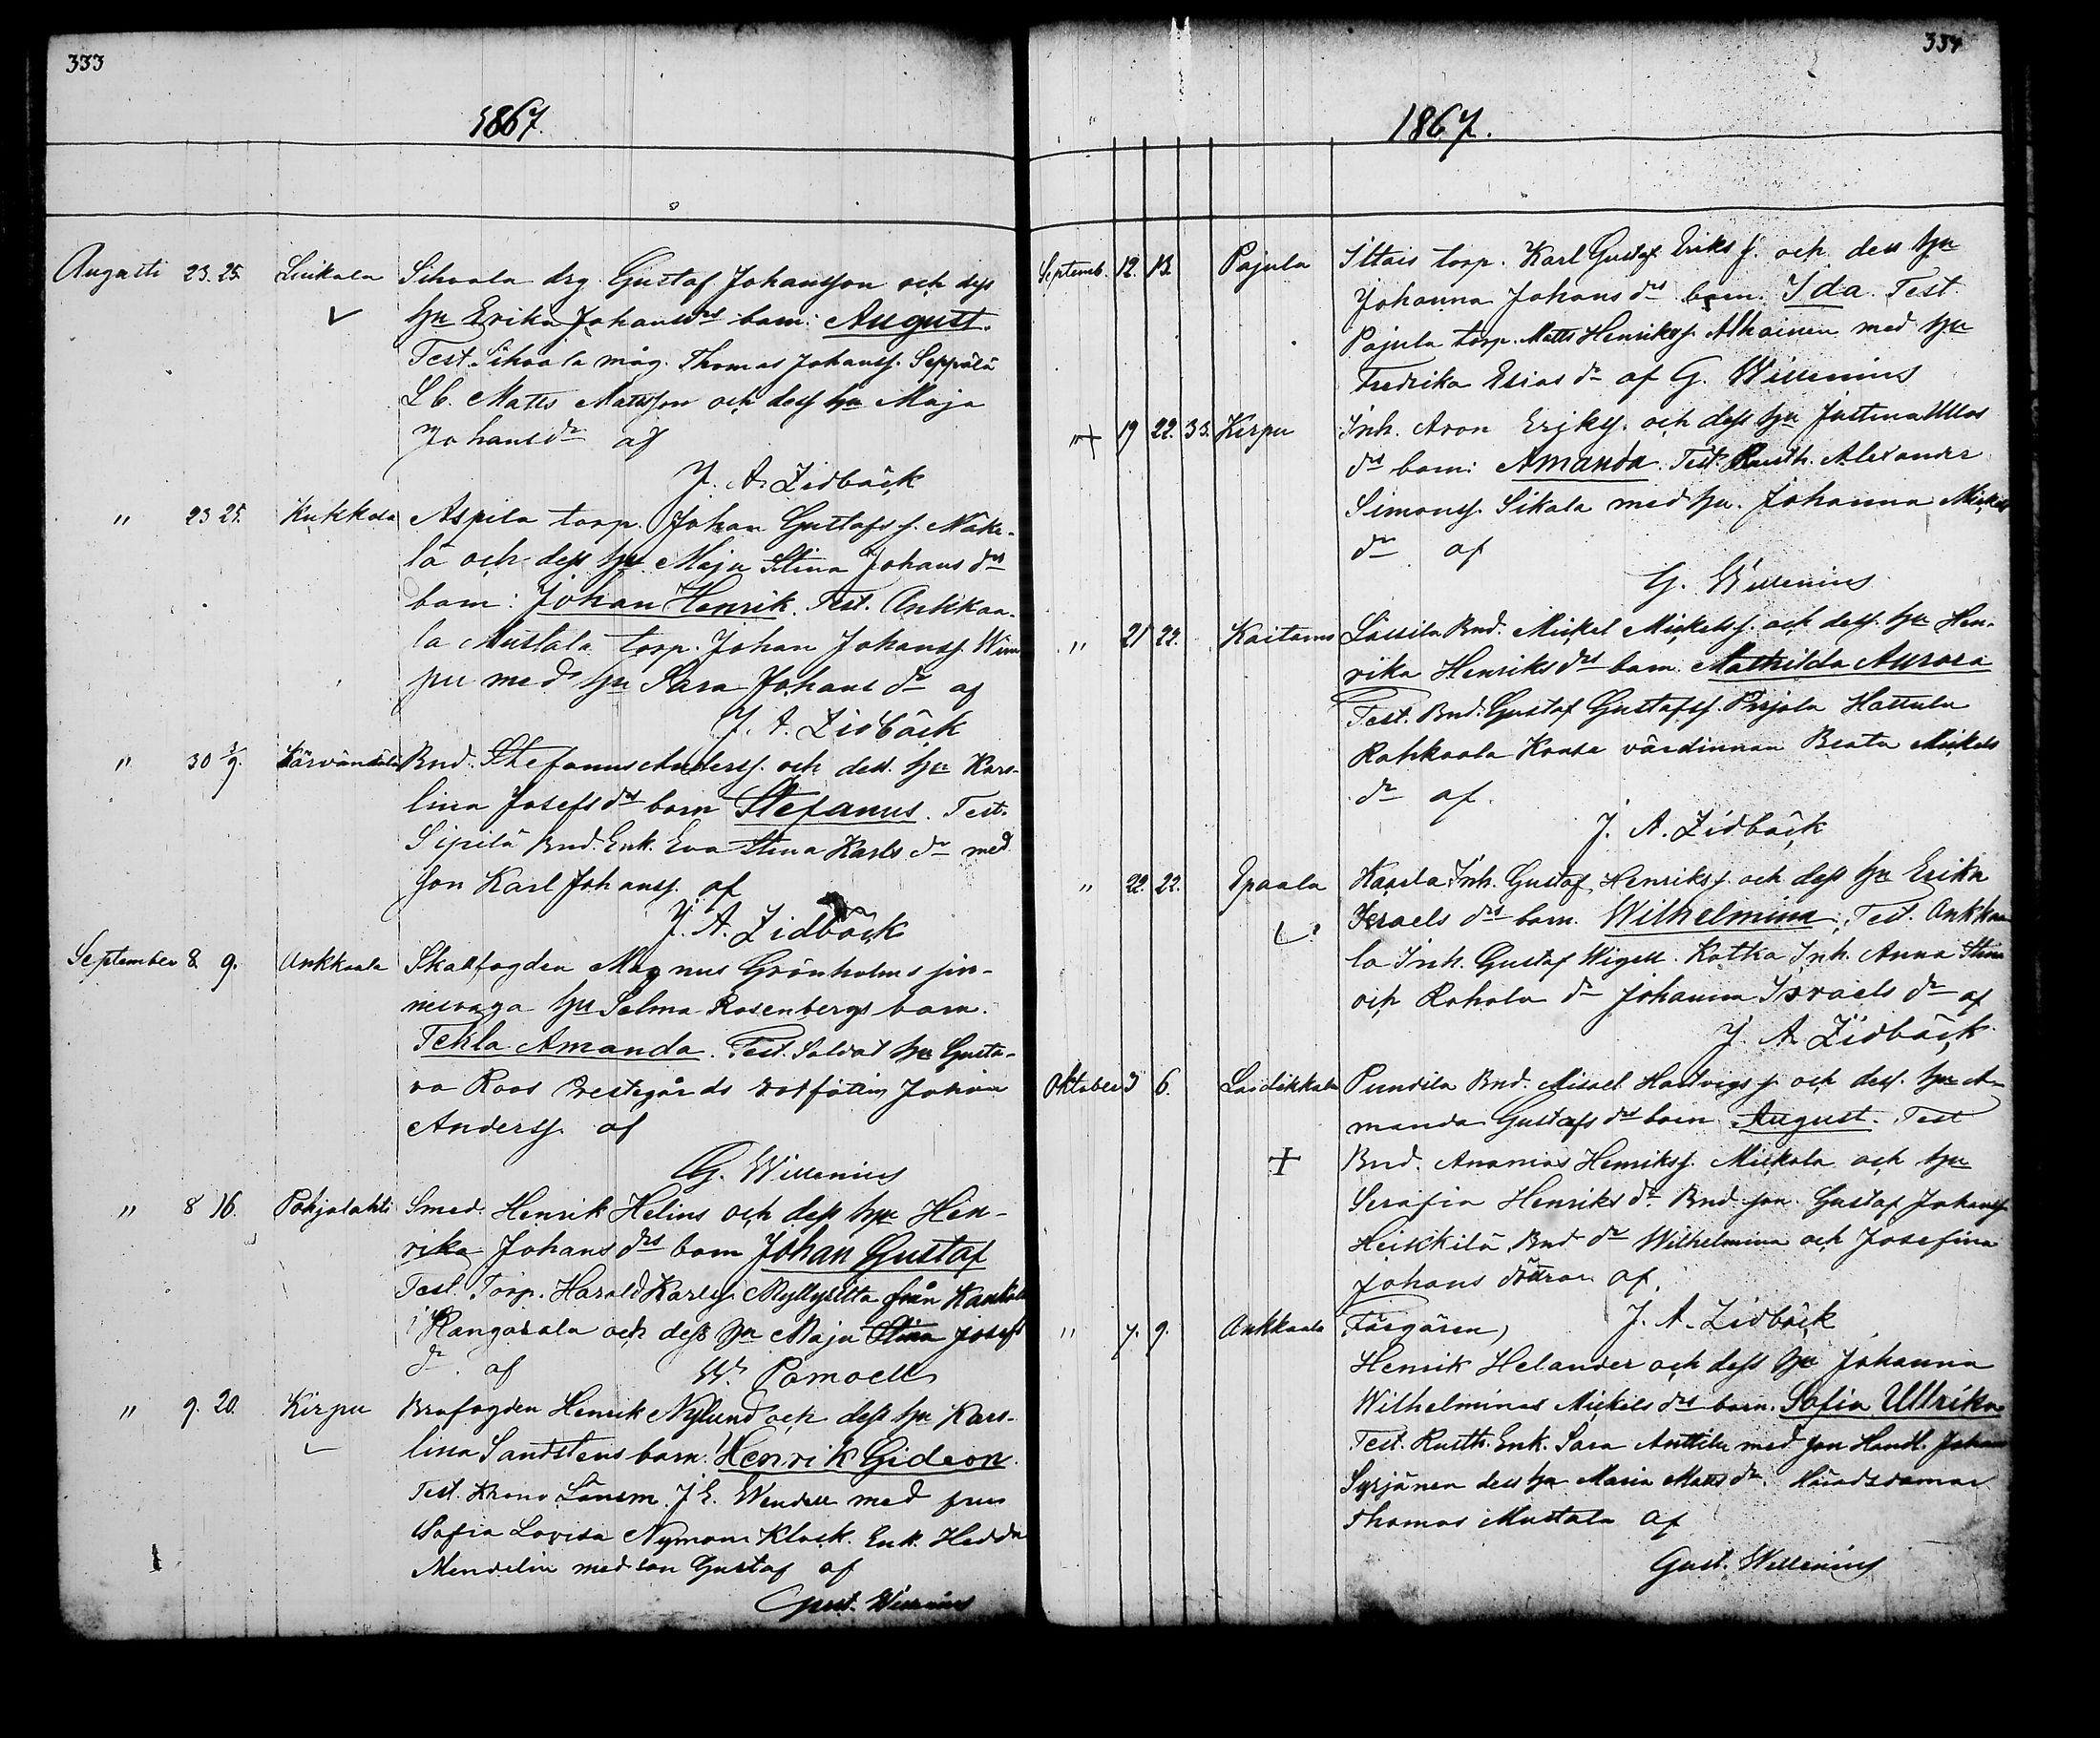 333
1867.
Augusti 23. 25. Liukala Sihvola drg. Gustaf Johansson och dess
hu Erika Johansdrs barn: August.
Test. Sihvola måg. Thomas Johanss. Seppälä
Lb. Matts Mattsson och dess hu Maja
Johansdr af
J. A. Zidbäck
" 23 25. Kukkola Aspila torp. Johan Gustafs s. Näke-
lä och dess hu Maja Stina Johans drs
barn: Johan Henrik. Test. Ankkaa-
la Mustala torp. Johan Johanss. Wim
pu med hu Sara Johans dr af
J. A. Zidbäck
" 30 1/9. Bnd. Stefanus Anderss. och dess hu Karo-
lina Josefs drs barn Stefanus. Test.
Sipilä Bnd. Enk. Eva Stina Karls dr med
son Karl Johanss. af
J. A. Zidbäck
September 8. 9. Ankkaala Skallfogden Magnus Grönholms
hu Selma Rosenbergs barn.
Tekla Amanda. Test. Soldat hu Gusta-
va Roos Prestegårds Johan
Anderss. af
G. Willenius
" 8 16. Pohjalahti Smed. Henrik Helins och dess hu Hen-
rika Johans drs barn Johan Gustaf
Test. Torp. Harald Karlss. Myllysilta från
i Kangasala och dess hu Maja Stina Josefs
dr. af W. Pomoell
" 9. 20. Kirpu Brofogden Henrik Nylund och dess hu Karo-
lina Sandstens barn: Henrik Gideon.
Test. Krono Länsm. J. E. Wendell med fru
Sofia Lovisa Nyman Klock. Enk. Hedda
Mendelin med son Gustaf af
Gust. Willenius
334
1867.
Septemb. 12. 13. Pajula Iltais torp. Karl Gustaf Eriks s. och dess hu
Johanna Johans drs barn. Ida. Test.
Pajula torp. Matts Henrikss. Alhainen med hu
Fredrika Esias dr af G. Willenius
"+ 19 22. 33. Kirpu Inh. Aron Erikss. och dess hu Justina Ullas
drs barn: Amanda. Test. Rusth. Alexander
Simonss. Sikala med hu. Johanna Mickels
dr af
G. Willenius
" 21 22. Kaitamo Lassila Bnd. Mickel Mickelss. och dess hu Hen-
rika Henriks drs barn: Mathilda Aurora
Test. Bnd. Gustaf Gustafss. Pirjola Hattula
Rahkoola Krase värdinnan Beata Mickels
dr af.
J. A. Zidbäck
" 22. 22. Epaala Kaarla Inh. Gustaf Henriks s. och dess hu Erika
Israels drs barn. Wilhelmina. Test. Ankkaa
la Inh. Gustaf Wigell. Kotka Inh. Anna Stina
och Rohola dr Johanna Israels dr af
J. A. Zidbäck
Oktober 3 6. Laidikkala Pundila Bnd. Misael Hartvigs s. och dess hu A-
manda Gustafs drs barn August. Test
Bnd. Ananias Henrikss. Mickola och hu
Serafia Henriks dr Bnd. son Gustaf Johanss
Heikkilä, Bnd dr Wilhelmina och Josefina
Johans döttrar af.
J. A. Zidbäck
" 7. 9. Ankkaala Färgaren,
Henrik Helander och dess hu Johanna
Wilhelminas Mickels drs barn. Sofia Ullrika
Test. Rusth. Enk. Sara Anttila med son Handl. Johan
Syrjänen dess hu Maria Matts dr. Häradsdomar
Thomas Mustala af
Gust. Willenius